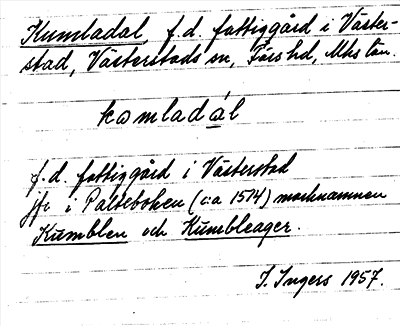 Kumladal f.d. fattiggård i Väster-
stad, Västerstads sn, Färs hd, Mhs län.
komladál
f.d. fattiggård i Västerstad
jfr i Palteboken (c:a 1514) marknamnen
Kumblen och Kumbleager.
I. Ingers 1957.